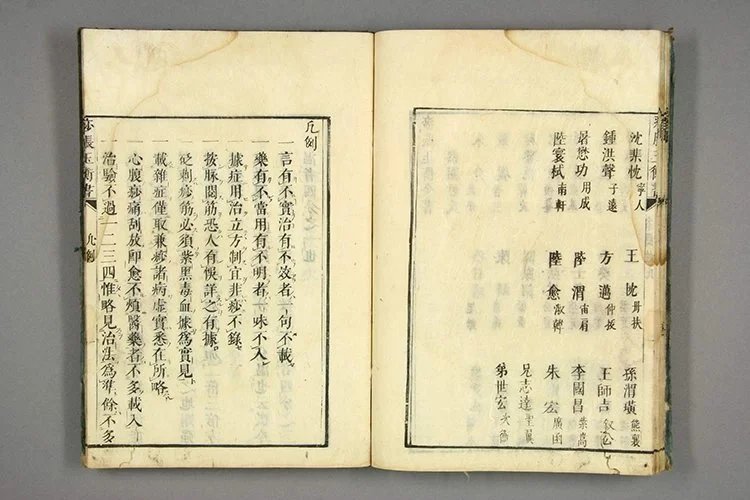 沈裴忱 寧人 王忱 丹扶 孫渭璜 熊襄
鍾洪聲 子遠 方邁 王師吉 叙公
屠懋功 用成 陸渭 李國昌
陸寰栻 南軒 陸愈 淑韓 朱宏
兄志達 聖翼
弟世宏
凡例
一言有不實治有不效者一句不載
一藥有不當用有不明者一味不入
一據症用治立方制宜非痧不錄
一按脉閱筋恐人有悞詳之有據
一砭刺痧筋必須紫黑毒血據爲實見
一載雜症僅取兼痧諸病虛實悉在所略
一心腹痧痛刮放即愈不煩醫藥者不多載入
一治驗不過一二三四惟略見治法爲準餘不多
痧脹玉衡書 凡例